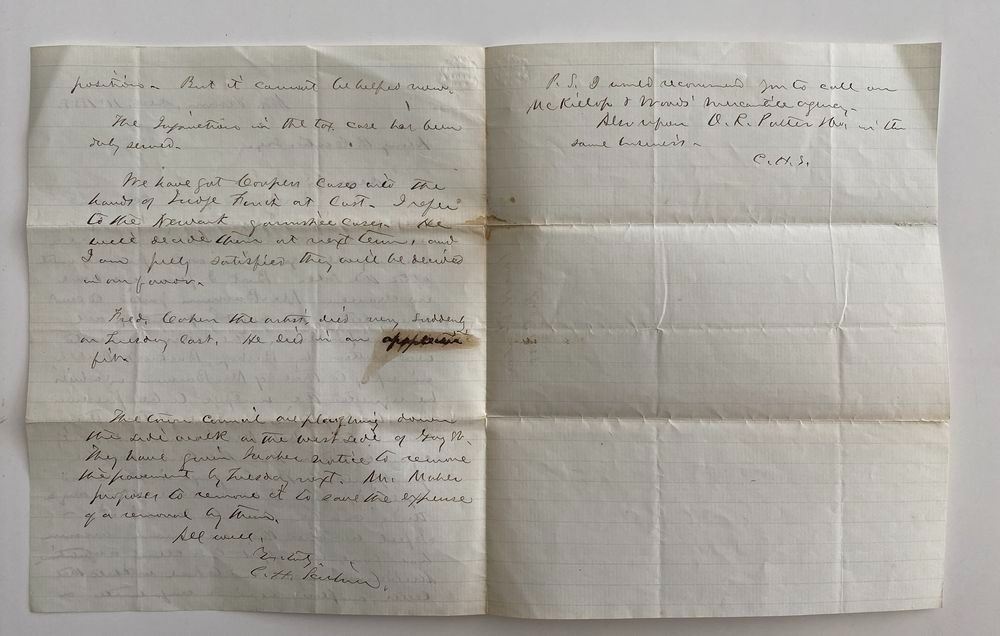 position. But it cannot be helped now.
The Injunction in the tax case has been
duly served.
We have got Coopers Cases into the
hands of Judge French at last. I refer
to the Newark garnishee cases. He
will decide them at next term, and
I am fully satisfied they will be decided
in our favor.
Fred. Cooper the artist, died very suddenly
on Tuesday last. He died in an
fit.
The town council are ploughing down
the side walk on the west side of Gay St.
They have given notice to remove
the pavement by Tuesday next. Mr. Maher
proposes to remove it to save the expense
of a removal by them.
All well.
C. H.
P. S. I would recommend you to call on
McKillop & Woods' mercantile agency.
Also upon O. R. Potter in the
same business.
C. H. S.